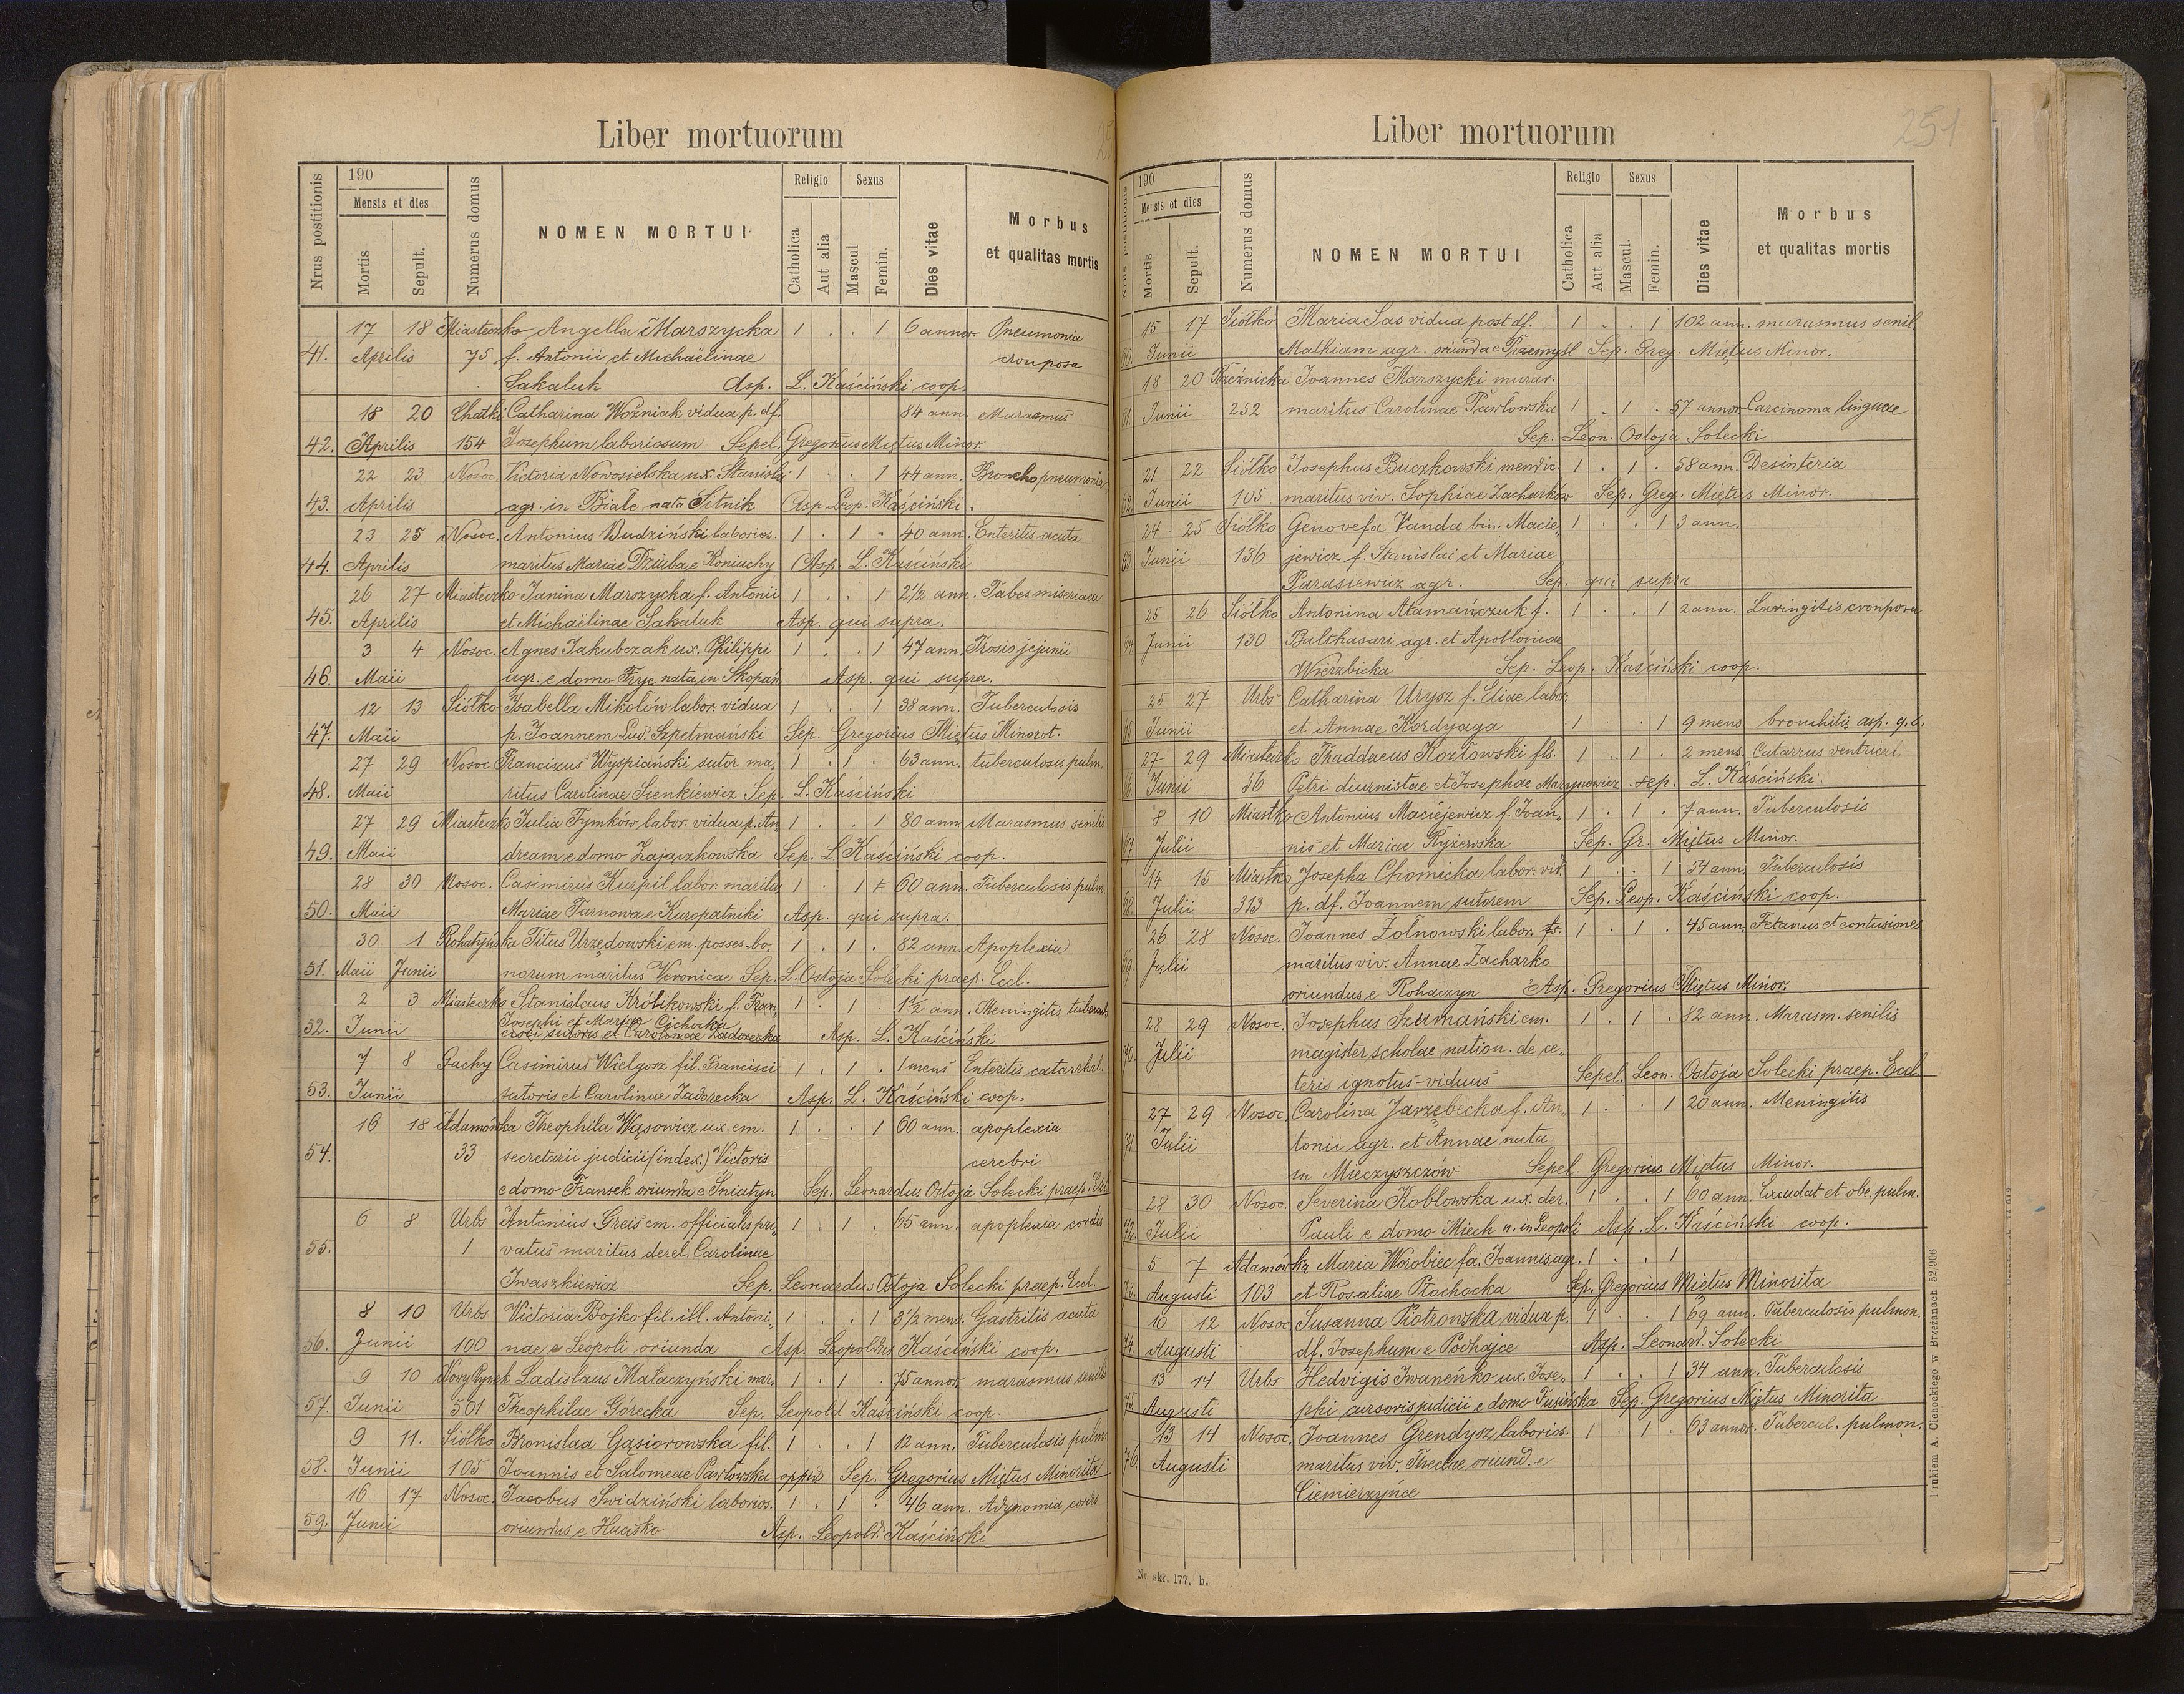 Liber mortuorum
Nrus postitionis
190
Mensis et dies
Mortis
Sepult.
Numerus domus
NOMEN MORTUI
Religio
Catholica
Aut alia
Sexus
Mascul
Femin.
Dies vitae
Morbus
et qualitas mortis
17 18 Miasteczko Angella Marszycka 1 . . 1 6 annor. Pneumonia
41. Aprilis 75 f. Antonii et Michaëlinae crouposa
Sakaluk Asp. L. Kaściński coop.
18 20 Chatki Catharina Woźniak vidua p. df. 84 ann. Marasmus
42. Aprilis 154 Josephum laboriosum Sepel. Gregorius Miętus Minor.
22 23 Nosoc. Victoria Nowosielska ux. Stanislai 1 . . 1 44 ann. Bronchopneumonia
43. Aprilis agr. in Białe nata Sitnik Asp. Leop. Kaściński.
23 25 Nosoc. Antonius Budziński laborios. 1 . 1 . 40 ann. Enteritis acuta
44. Aprilis maritus Mariae Dziuba e Koniuchy Asp. L. Kaściński
26 27 Miasteczko Janina Marszycka f. Antonii 1 . . 1 2 1/2 ann. Tabes miseriaca
45. Aprilis et Michaëlinae Sakaluk Asp. qui supra.
3 4 Nosoc. Agnes Jakubczak ux. Philippi 1 . . 1 47 ann. jejunii
46. Maii agr. e domo Fryc nata in Skopań Asp. qui supra.
12 13 Siółko Isabella Mikołów labor. vidua 1 . . 1 38 ann. Tuberculosis
47. Maii p. Joannem Lud. Szpetmański Sep. Gregorius Miętus Minorot.
27 29 Nosoc Franciscus Wyspiański sutor ma, 1 . 1 . 63 ann. tuberculosis pulm.
48. Maii ritus Carolinae Sienkiewicz Sep. L. Kaściński
27 29 Miasteczko Julia Tymków labor. vidua p. An 1 . . 1 80 ann. Marasmus senilis
49. Maii dream e domo Zajączkowska Sep. L. Kaściński coop.
28 30 Nosoc. Casimirus Kurpil labor. maritus 1 . 1 60 ann. Tuberculosis pulm.
50. Maii Mariae Tarnowa e Kuropatniki Asp. qui supra.
30 1 Rohatyńska Titus Urzędowski em. posses. bo, 1 . 1 . 82 ann. Apoplexia
51. Maii Junii norum maritus Veronicae Sep. L. Ostoja Solecki praep. Eccl.
2 3 Miasteczko Stanislaus Królikowski f. Fran, 1 . 1 . 1 1/2 ann. Meningitis
Josephi et Mariae Cichocka
52. Junii cisci sutoris et Carolinae Zadorecka Asp. L. Kaściński
7 8 Gachy Casimirus Wielgosz fil. Francisci 1 . 1 . 1 mens Enteritis catarrhal.
53. Junii sutoris et Carolinae Zadorecka Asp. L. Kaściński coop.
16 18 Adamówka Theophila Wąsowicz ux. em. 1 . . 1 60 ann. apoplexia
54. 33 secretarii judicii (index.) Victoris cerebri
e domo Fransek oriunda e Śniatyn Sep. Leonardus Ostoja Solecki praep. Eccl
6 8 Urbs Antonius Greis em. officialis pri, 1 . 1 . 65 ann. apoplexia cordis
55. 1 vatus maritus derel. Carolinae
Iwaszkiewicz Sep. Leonardus Ostoja Solecki praep. Eccl.
8 10 Urbs Victoria Bojko fil. ill. Antoni, 1 . . 1 3 1/2 mens. Gastritis acuta
56. Junii 100 nae e Leopoli oriunda Asp. Leopoldus Kaściński coop.
9 10 Nowy Rynek Ladislaus Mataczyński mar, 1 . 1 . 75 annor. marasmus senilis
57. Junii 501 Theophilae Górecka Sep. Leopold Kaściński coop.
9 11. Siółko Bronislaa Gąsiorowska fil. 1 . . 1 12 ann. Tuberculosis pulm
58. Junii 105 Joannis et Salomeae Pawłowska oppid Sep. Gregorius Miętus Minorita
16 17 Nosoc. Jacobus Swidziński laborios. 1 . 1 . 46 ann. Adynamia cordis
59. Junii oriundus e Hucisko Asp. Leopold. Kaściński
251
Liber mortuorum
Nrus postitionis
190
Mensis et dies
Mortis
Sepult.
Numerus domus
NOMEN MORTUI
Religio
Catholica
Aut alia
Sexus
Mascul.
Femin.
Dies vitae
Morbus
et qualitas mortis
15 17 Siółko Maria Sas vidua post df. 1 . . 1 102 ann. marasmus senil
60. Junii Mathiam agr. oriunda e Przemyśl Sep. Greg. Miętus Minor.
18 20 Brzeźnicka Joannes Marszycki murar.
61. Junii 252 maritus Carolinae Pawłowska 1 . 1 . 57 annor. Carcinoma linguae
Sep. Leon. Ostoja Solecki
21 22 Siółko Josephus Buczkowski mendic. 1 . 1 . 58 ann. Desinteria
62. Junii 105 maritus viv. Sophiae Zacharków Sep. Greg. Miętus Minor.
24 25 Siółko Genovefa Vanda bin. Macie, 1 . . 1 3 ann.
63. Junii 136 jewicz f. Stanislai et Mariae
Parasiewicz agr. Sep. qui supra
25 26 Siółko Antonina Atamańczuk f. 1 . . 1 2 ann. Laringitis crouposa
64. Junii 130 Balthasari agr. et Apolloniae
Wierzbicka Sep. Leop. Kaściński coop.
25 27 Urbs Catharina Urysz f. Eliae labor.
65. Junii et Annae Kordyaga 1 . . 1 9 mens. bronchitis asp. q. s.
27 29 Miasteczko Thaddaeus Kozłowski fls. 1 . 1 . 2 mens. Catarrus ventriculi
66. Junii 56 Petri diurnistae et Josephae Marynowicz sep. L. Kaściński.
8 10 Miastko Antonius Maciejewicz f. Joan, 1 . 1 . 7 ann. Tuberculosis
67. Julii nis et Mariae Ryżewska Sep. Gr. Miętus Minor.
14 15 Miastko Josepha Chomicka labor. vid. 1 . . 1 54 ann. Tuberculosis
68. Julii 313 p. df. Joannem sutorem Sep. Leop. Kaściński coop.
26 28 Nosoc. Joannes Żołnowski labor. fs. 1 . 1 . 45 ann. Tetanus et contusiones
69. Julii maritus viv. Annae Zacharko
oriundus e Rohaczyn Asp. Gregorius Miętus Minor.
28 29 Nosoc. Josephus Szumański em. 1 . 1 . 82 ann. Marasm. senilis
70. Julii magister scholae nation. de ce,
teris ignotus - viduus Sepel. Leon. Ostoja Solecki praep. Eccl.
27 29 Nosoc. Carolina Jarzębecka f. An, 1 . . 1 20 ann. Meningitis
71. Julii tonii agr. et Annae nata
in Mieczyszczów Sepel. Gregorius Miętus Minor.
28 30 Nosoc. Severina Kobłowska ux. der. 1 . . 1 60 ann. Exsudat et obe. pulm.
72. Julii Pauli e domo Miech n. in Leopoli Asp. L. Kaściński coop.
5 7 Adamówka Maria Worobiec fa. Joannis agr. 1 . . 1
73. Augusti 103 et Rosaliae Płochocka Sep. Gregorius Miętus Minorita
10 12 Nosoc Susanna Piotrowska vidua p. 1 . . 1 69 ann. Tuberculosis pulmon.
74. Augusti df. Josephum e Podhajce Asp. Leonard. Solecki
13 14 Urbs Hedvigis Iwaneńko ux. Jose, 1 . . 1 34 ann. Tuberculosis
75. Augusti phi cursoris judicii e domo Fusińska Sep. Gregorius Miętus Minorita
13 14 Nosoc. Joannes Grendysz laborios. 1 . 1 . 63 annor. Tubercul. pulmon.
76. Augusti maritus viv. Theclae oriund. e
Ciemierzyńce
Nr. skł. 177. b.
Drukiem A. Cichockiego w Brzeżanach 52/906